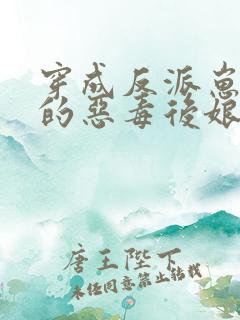 穿成反派崽
的惡毒後娘
唐王陛下
未經同意禁止轉載